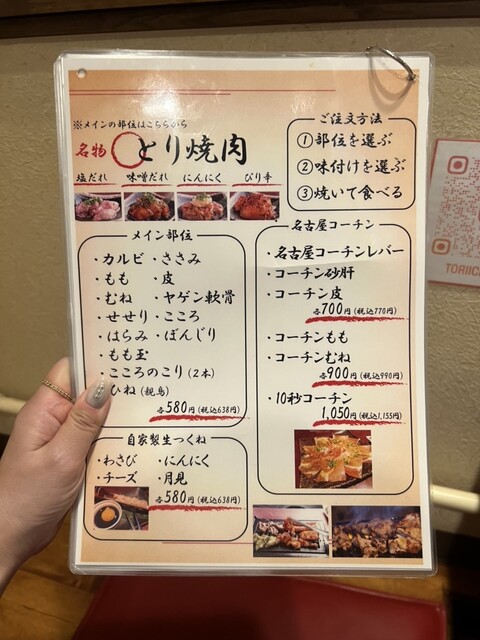 ※メインの部位はこちらから
名物 とり焼肉
塩だれ 味噌だれ にんにく ぴり辛
ご注文方法
①部位を選ぶ
②味付けを選ぶ
③焼いて食べる
メイン部位
・カルビ ・ささみ
・もも ・皮
・むね ・ヤゲン軟骨
・せせり ・こころ
・はらみ ・ぼんじり
・もも玉
・こころのこり(2本)
ひね(親鳥)
各580円(税込638円)
自家製生つくね
・わさび ・にんにく
・チーズ ・月見
各580円(税込638円)
名古屋コーチン
・名古屋コーチンレバー
・コーチン砂肝
・コーチン皮
各700円(税込770円)
・コーチンもも
・コーチンむね
各900円(税込990円)
・10秒コーチン
1,050円(税込1,155円)